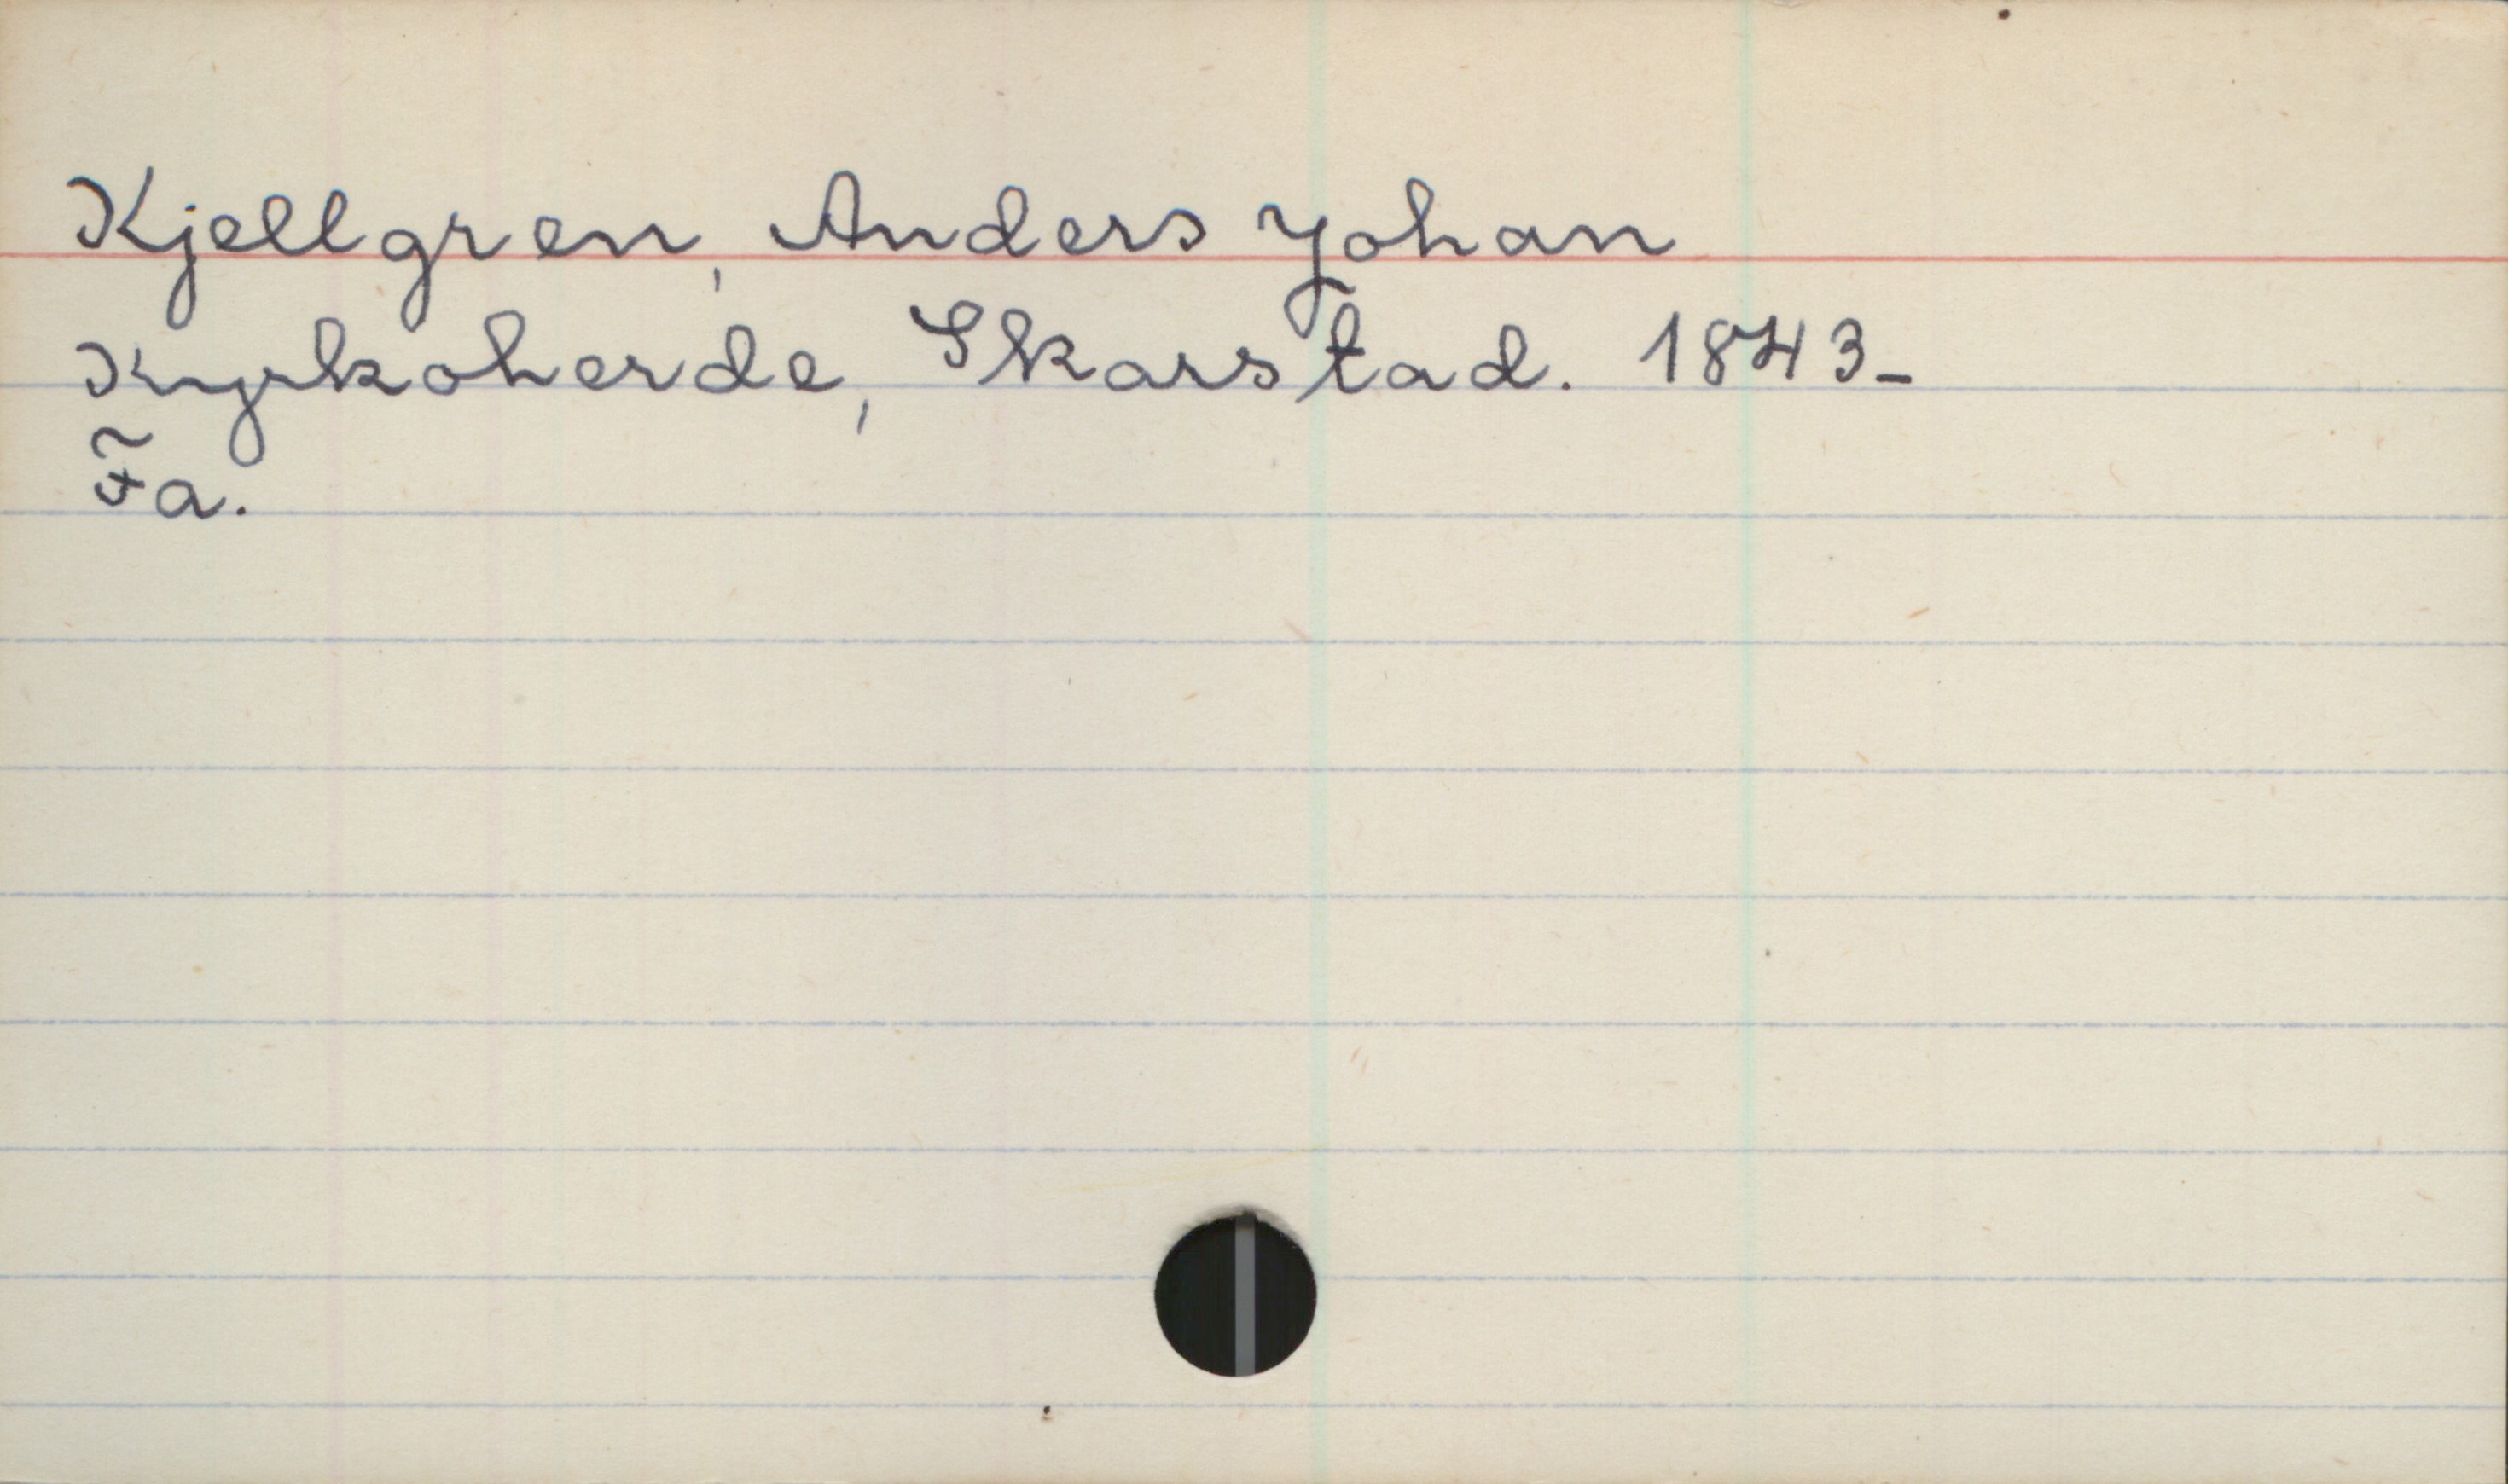 Kjellgren, Anders Johan
Kyrkoherde, Skarstad. 1843-
Fa.